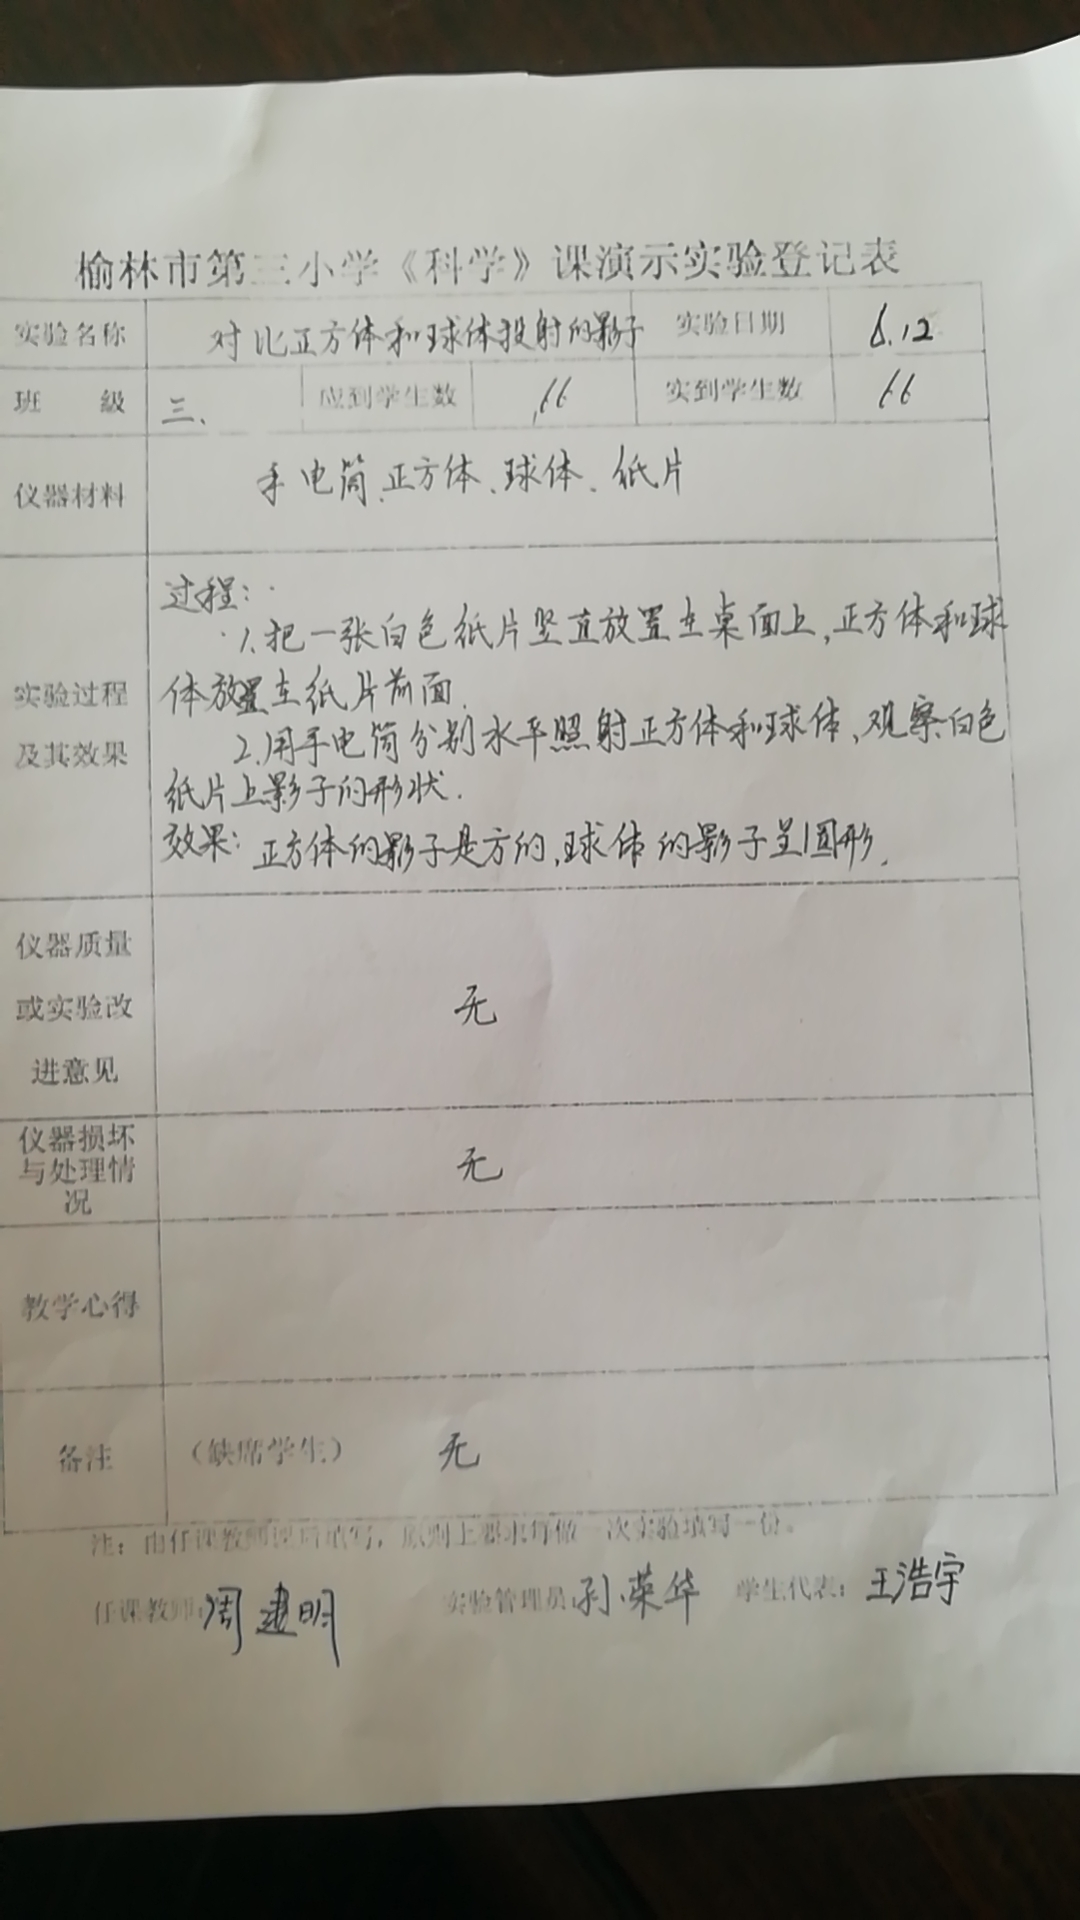 榆林市第三小学《科学》课演示实验登记表
实验名称 对比正方体和球体投射的影子 实验日期 6.12
班 级 三、 应到学生数 66 实到学生数 66
仪器材料 手电筒、正方体、球体、纸片
过程:
1.把一张白色纸片竖直放置在桌面上,正方体和球
体放置在纸片前面.
实验过程
2.用手电筒分别水平照射正方体和球体、观察白色
及其效果
纸片上影子的形状.
效果: 正方体的影子是方的,球体的影子呈圆形.
仪器质量
或实验改 无
进意见
仪器损坏
与处理情 无
况
教学心得
备注 (缺席学生) 无
注:由任课教师课后填写,原则上要求每做一次实验填写一份。
任课教师:周建明 实验管理员:孙荣华 学生代表:王浩宇